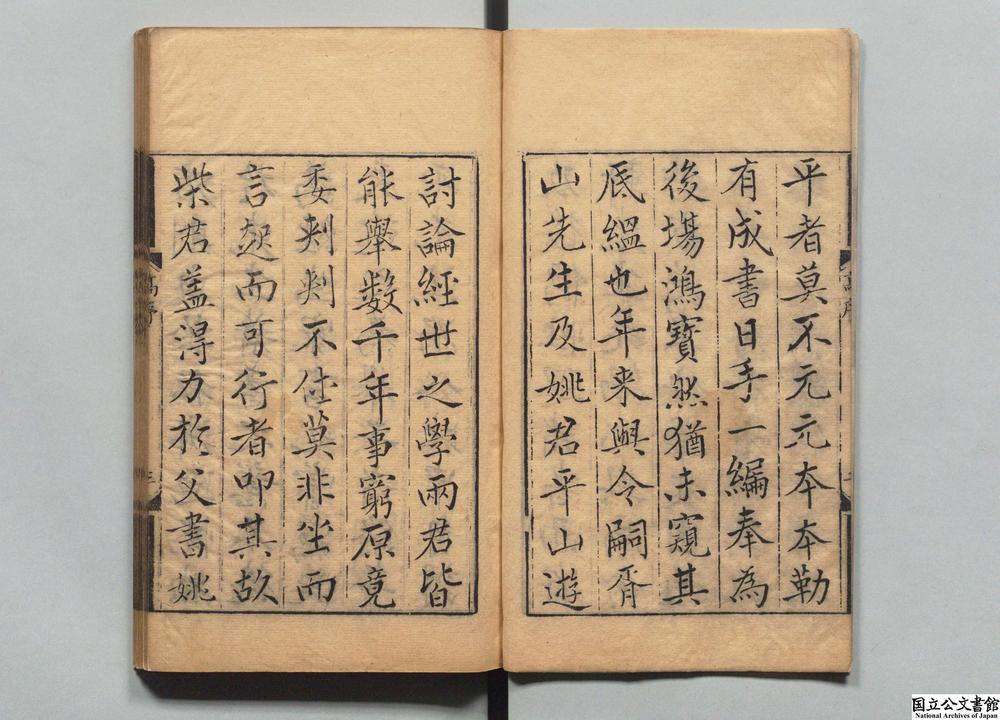 平者莫不元元本本勒
有成書日手一編奉為
後場鴻寶然猶未窺其
底縕也年来與令嗣胥
山先生及姚君平山遊
討論經世之學兩君皆
能舉数千年事窮原竟
委剌剌不住莫非坐而
言起而可行者叩其故
柴君盖得力於父書姚
序
三
国立公文書館
National Archives of Japan